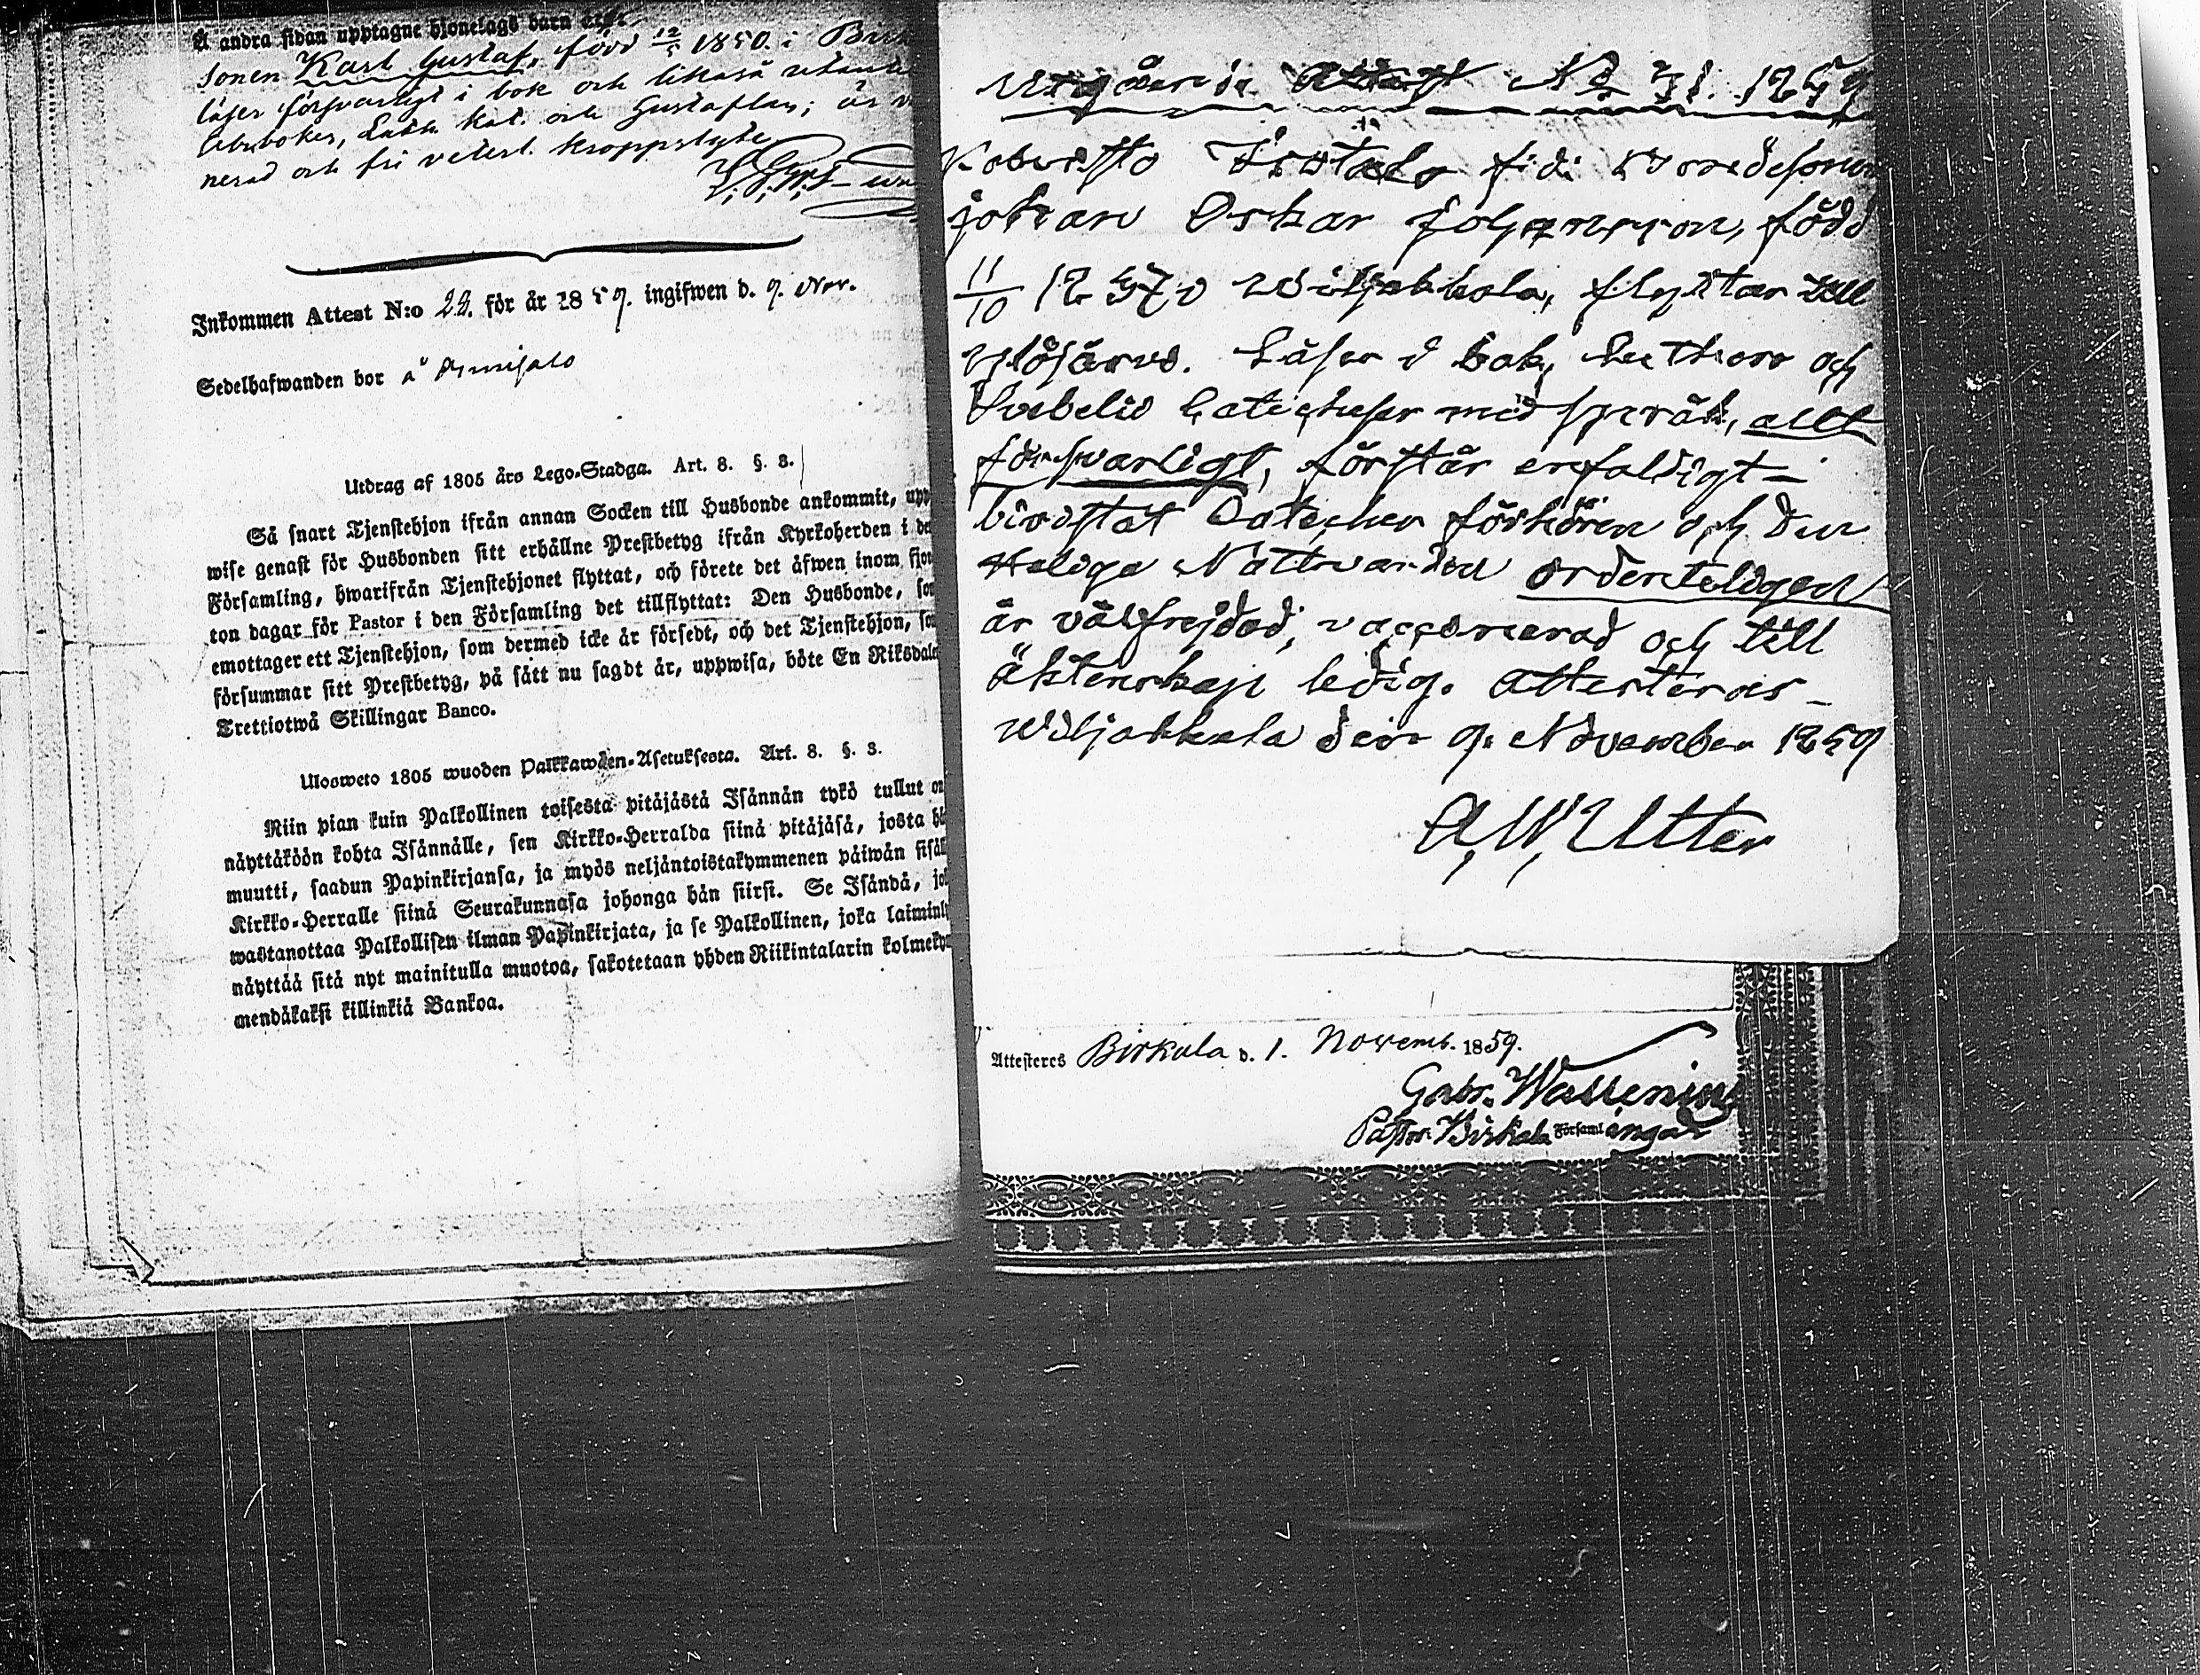 Å andra sidan upptagne hjonelags barn äro:
Sonen Karl Gustaf, född 12/5 1850. i Birk
läser försvarligt i bok och likaså utantill
Abcboken, Luth. Kat. och Gustaflan; är v
nerad och fri veterl. kroppslyte
Inkommen Attest N:o 22. för år 1859. ingifwen d. 9. Nov.
Sedelhafwanden bor å
Utdrag af 1805 års Lego-Stadga. Art. 8. §. 3.
Så snart Tjenstehjon ifrån annan Socken till Husbonde ankommit, upp
wise genast för Husbonden sitt erhållne Prestbetyg ifrån Kyrkoherden i de
Församling, hwarifrån Tjenstehjonet flyttat, och förete det äfwen inom fjor
ton dagar för Pastor i den Församling det tillflyttat: Den Husbonde, som
emottager ett Tjenstehjon, som dermed icke är försedt, och det Tjenstehjon, som
försummar sitt Prestbetyg, på sätt nu sagdt är, uppwisa, böte En Riksdaler
Trettiotwå Skillingar Banco.
Ulosweto 1805 wuoden Palkkawäen-Asetuksesta. Art. 8. §. 3.
Niin pian kuin Palkollinen toisesta pitäjästä Isännän tykö tullut on
näyttäköön kohta Isännälle, sen Kirkko-Herralda siinä pitäjäsä, josta hä
muutti, saadun Papinkirjansa, ja myös neljäntoistakymmenen päiwän sisäl
Kirkko-Herralle siinä Seurakunnasa johonga hän siirsi. Se Isändä, jo
wastanottaa Palkollisen ilman Papinkirjata, ja se Palkollinen, joka laiminly
näyttää sitä nyt mainitulla muotoa, sakotetaan yhden Riikintalarin kolmekym
mendäkaksi killinkiä Bankoa.
Utgående Attest No 31. 1859
Johan Oskar Johansson, född
11/10 1837 i Wiljakkala, flyttar till
Ylöjärvi. Läser i bok, Lutheri och
Svebelii Catecheser med språk, allt
försvarligt, förstår enfaldigt –
bivistat Catechesförhören och den
Heliga Nattvarden ordenteligen
är välfrejdad, vaccinerad och till
äktenskap ledig. Attesteras –
Wiljakkala den 9. November 1859
A. W. Utter
Attesteres Birkala d. 1. Novemb. 1859.
Gabr. Wallenius
Pastor Birkala Församlingar